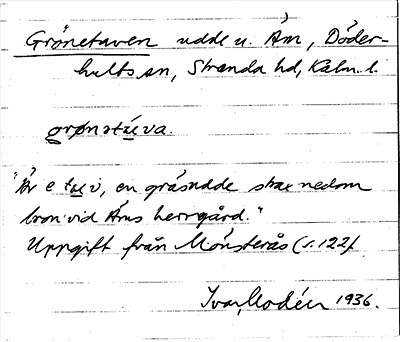 Grönetuven udde u. Åm, Döder-
hults sn, Stranda hd, Kalm. l.
grønstu̲va.
"Är e tu̲v, en gräsudde strax nedom
bron vid Åms herrgård."
Uppgift från Mönsterås (s. 122).
Ivar Modéer 1936.